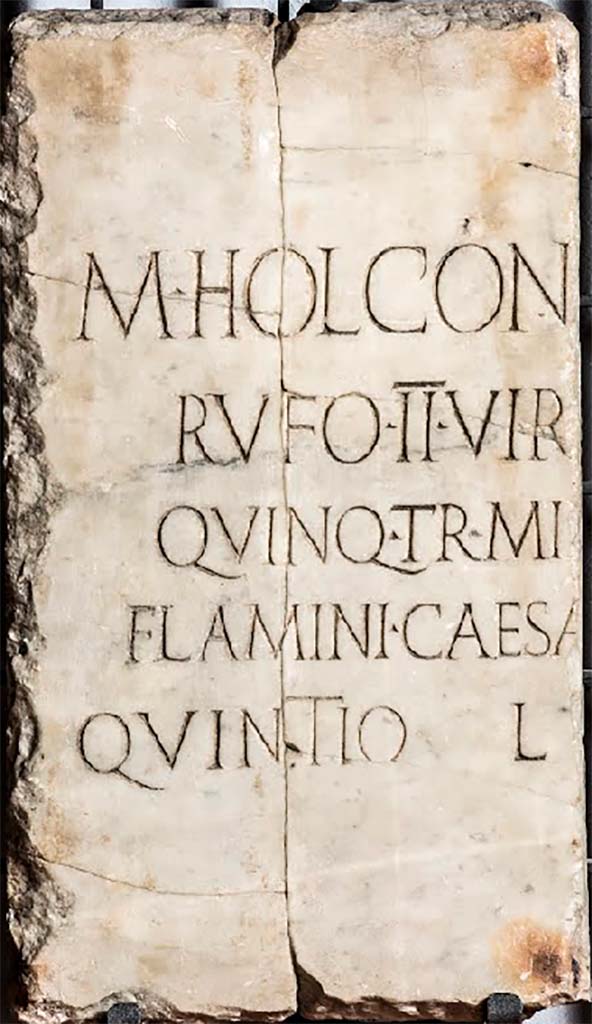 M·HOLCON
RVFO·II·VIR
QVINQ·TR·MI
FLAMINI·CAESA
QVINTIO L